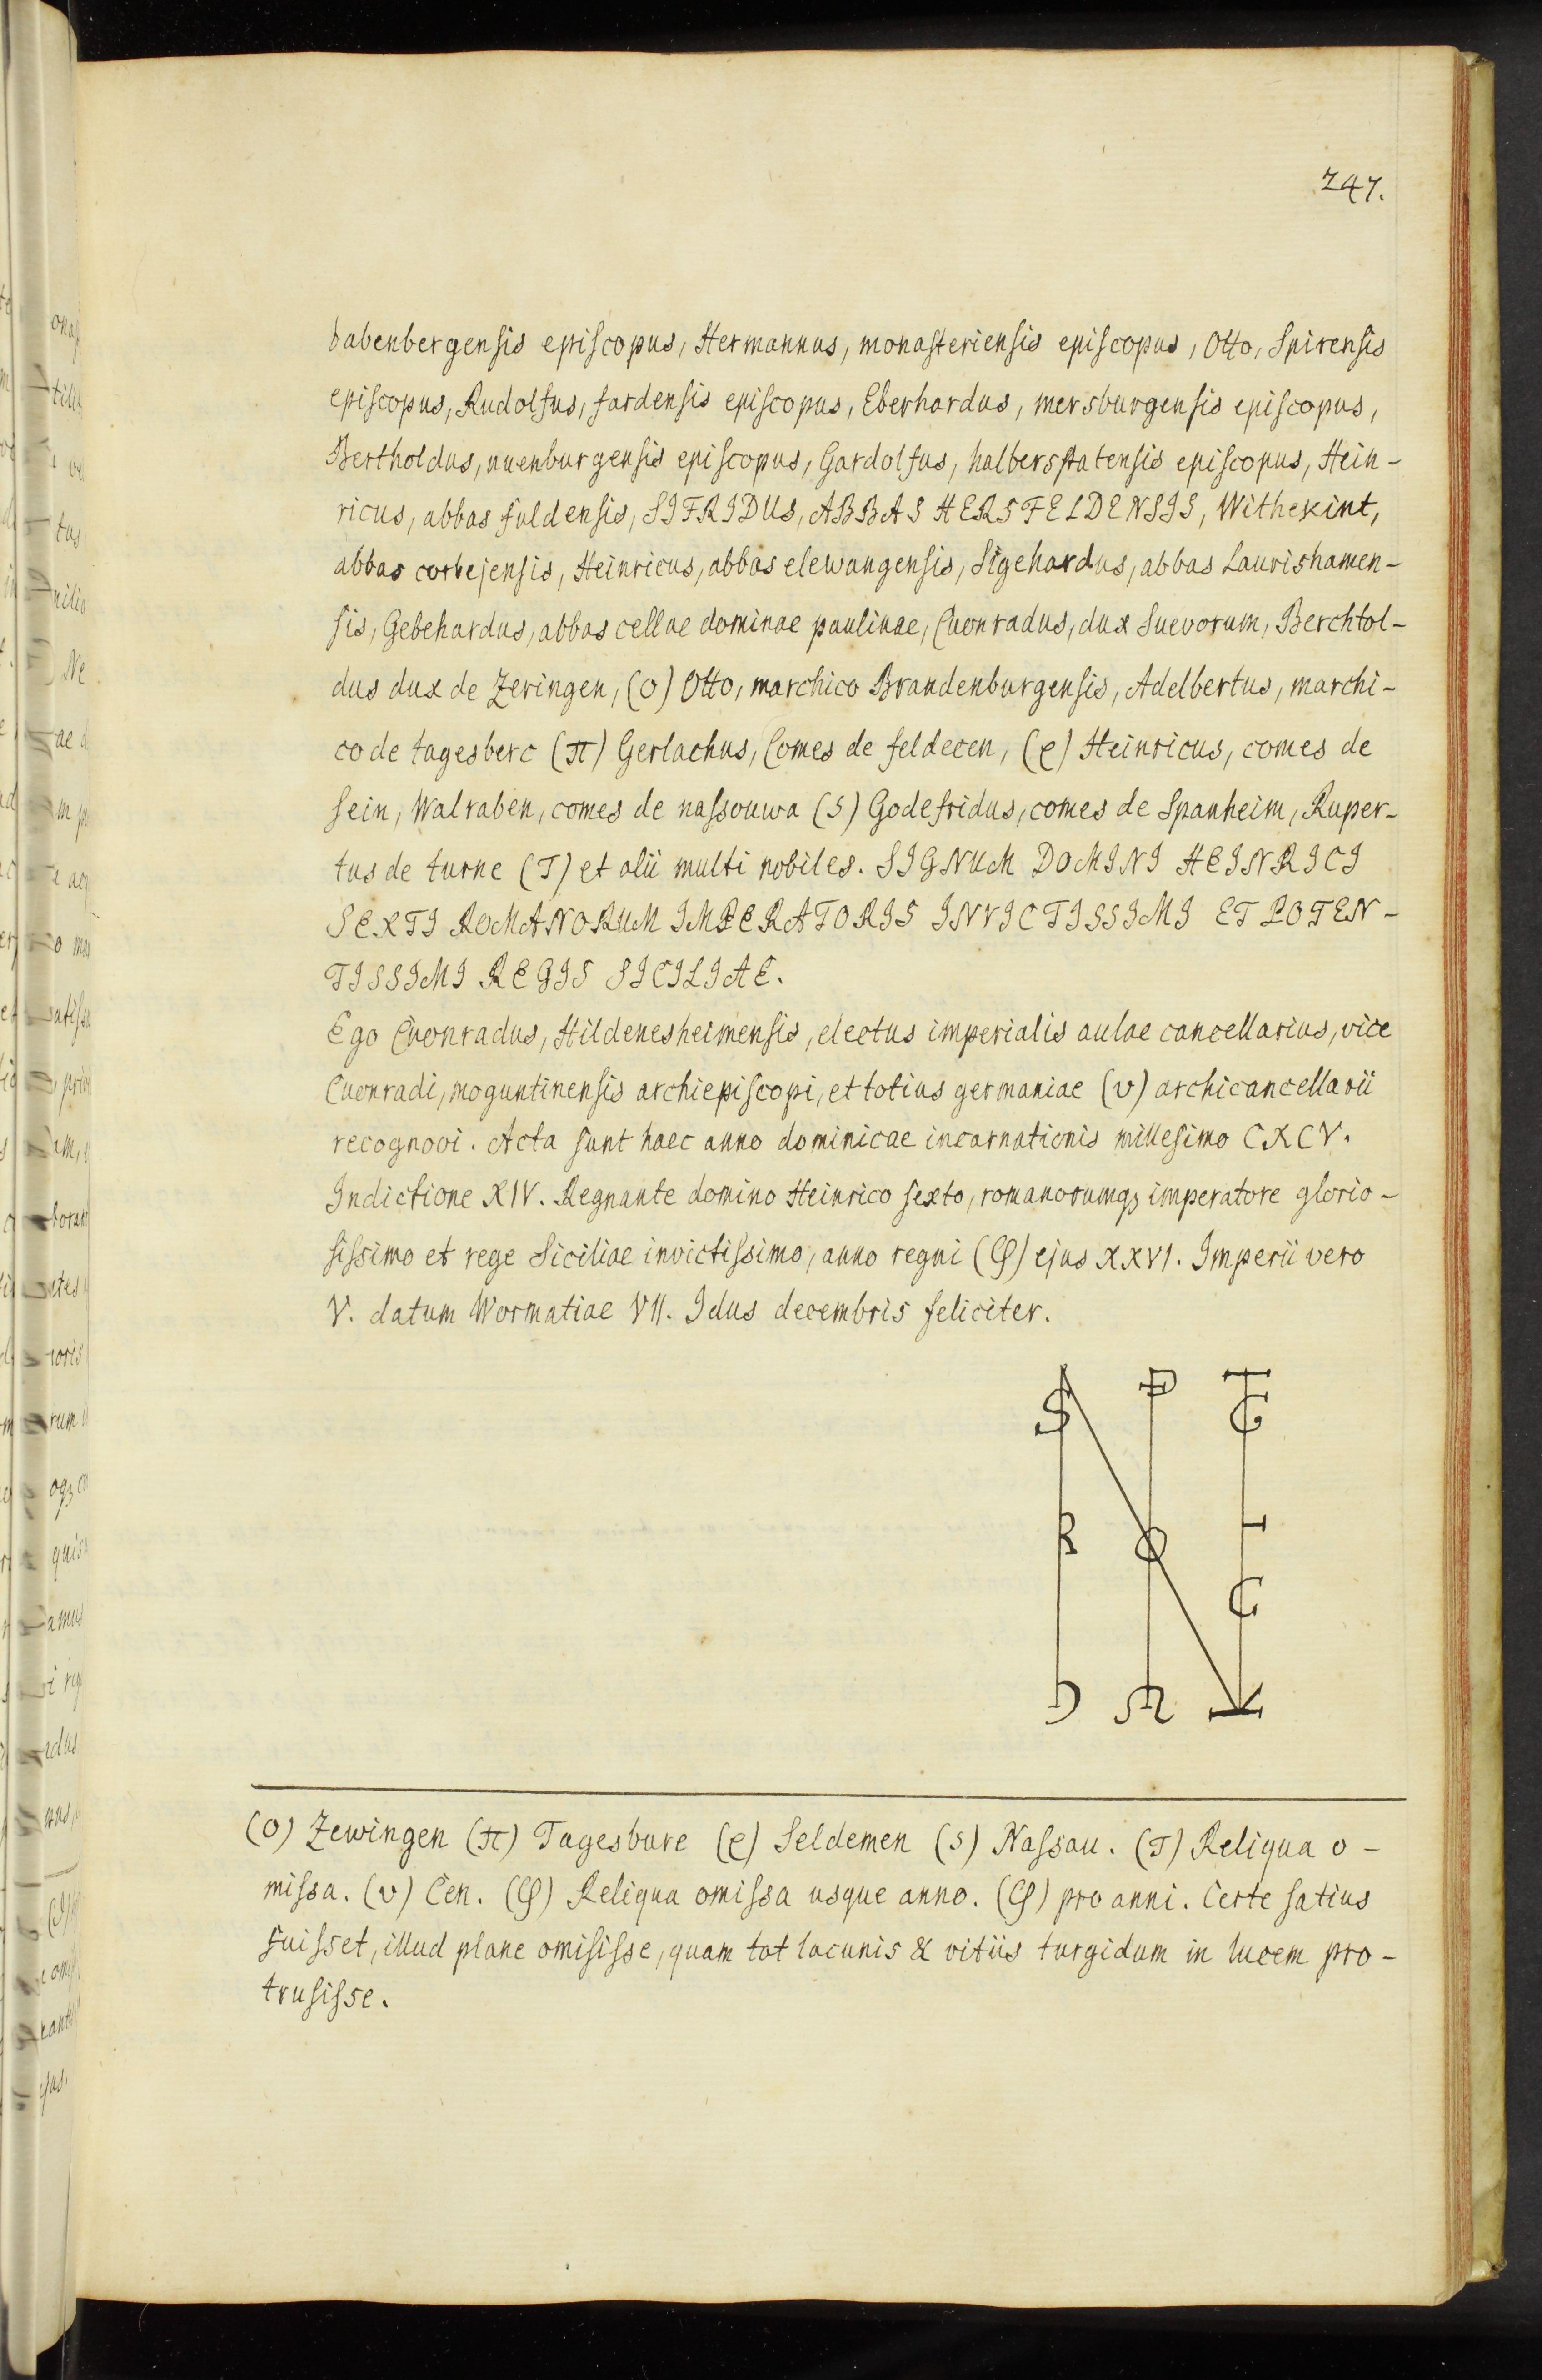 247.
babenbergensis episcopus, Hermannus, monasteriensis episcopus, Otto, Spirensis
episcopus, Rudolfus, fardensis episcopus, Eberhardus, mersburgensis episcopus,
Bertholdus, nuenburgensis episcopus, Gardolfus, halberstatensis episcopus, Hein-
ricus, abbas fuldensis, SIFRIDUS, ABBAS HERSFELDENSIS, Withekint,
abbas corbejensis, Heinricus, abbas elewangensis, Sigehardus, abbas Laurishamen-
sis, Gebehardus, abbas cellae dominae paulinae, Cuonradus, dux Suevorum, Berchtol-
dus dux de Zeringen, (o) Otto, marchico Brandenburgensis, Adelbertus, marchi-
co de tagesberc (π) Gerlachus, Comes de feldecen, (ρ) Heinricus, comes de
Sein, Walraben, comes de nassouwa (s) Godefridus, comes de Spanheim, Ruper-
tus de turne (T) et alii multi nobiles. SIGNUM DOMINI HEINRICI
SEXTI ROMANORUM IMPERATORIS INVICTISSIMI ET POTEN-
TISSIMI REGIS SICILIAE.
Ego Cuonradus, Hildenesheimensis, electus imperialis aulae cancellarius, vice
Cuonradi, moguntinensis archiepiscopi, et totius germaniae (υ) archicancellarii
recognovi. Acta sunt haec anno dominicae incarnationis millesimo CXCV.
Indictione XIV. Regnante domino Heinrico sexto, romanorumqꝫ imperatore glorio-
sissimo et rege Siciliae invictissimo, anno regni (φ) ejus XXVI. Imperii vero
V. datum Wormatiae VII. Idus decembris feliciter.
S P T
E
R O I
C
D M
(o) Zewingen (π) Tagesbure (ρ) Seldemen (s) Nassau. (T) Reliqua o-
missa. (υ) Cen. (φ) Reliqua omissa usque anno. (φ) pro anni. Certe satius
fuisset, illud plane omisisse, quam tot lacunis & vitiis turgidum in lucem pro-
trusisse.